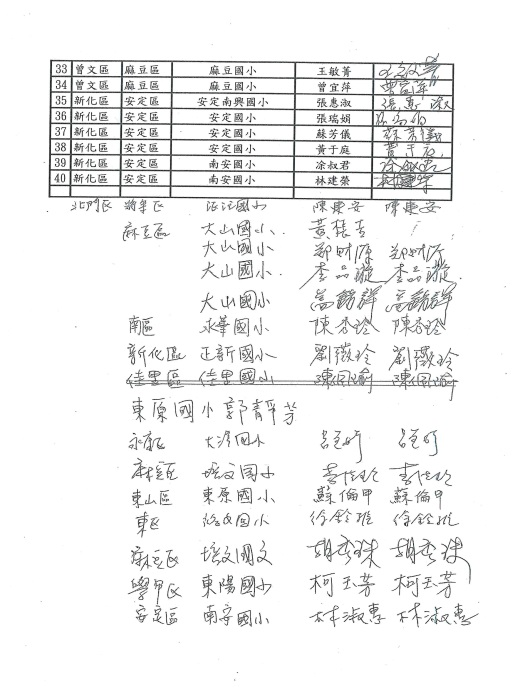 33 曾文區 麻豆區 麻豆國小 王敏菁
34 曾文區 麻豆區 麻豆國小 曾宜萍 曾宜萍
35 新化區 安定區 安定南興國小 張惠淑 張惠淑
36 新化區 安定區 安定國小 張瑞娟
37 新化區 安定區 安定國小 蘇芳儀 蘇芳儀
38 新化區 安定區 安定國小 黃于庭 黃于庭
39 新化區 安定區 南安國小 凃叔君
40 新化區 安定區 南安國小 林建榮
北門區 將軍區 國小 陳慶安 陳慶安
麻豆區 大山國小
大山國小 鄭財源 鄭財源
大山國小 李品璇 李品璇
大山國小
南區 永華國小 陳杏玲 陳杏玲
新化區 正新國小 劉薇玲 劉薇玲
佳里區 佳里國小 陳佩瑜 陳佩瑜
東原國小 郭靜芳
永康區 大灣國小
麻豆區 培文國小
東山區 東原國小 蘇倫甲 蘇倫甲
東區 國小 徐鈴雅 徐鈴雅
麻豆區 培文國文 胡秀珠 胡秀珠
學甲區 東陽國小 柯玉芳 柯玉芳
安定區 南安國小 林淑惠 林淑惠